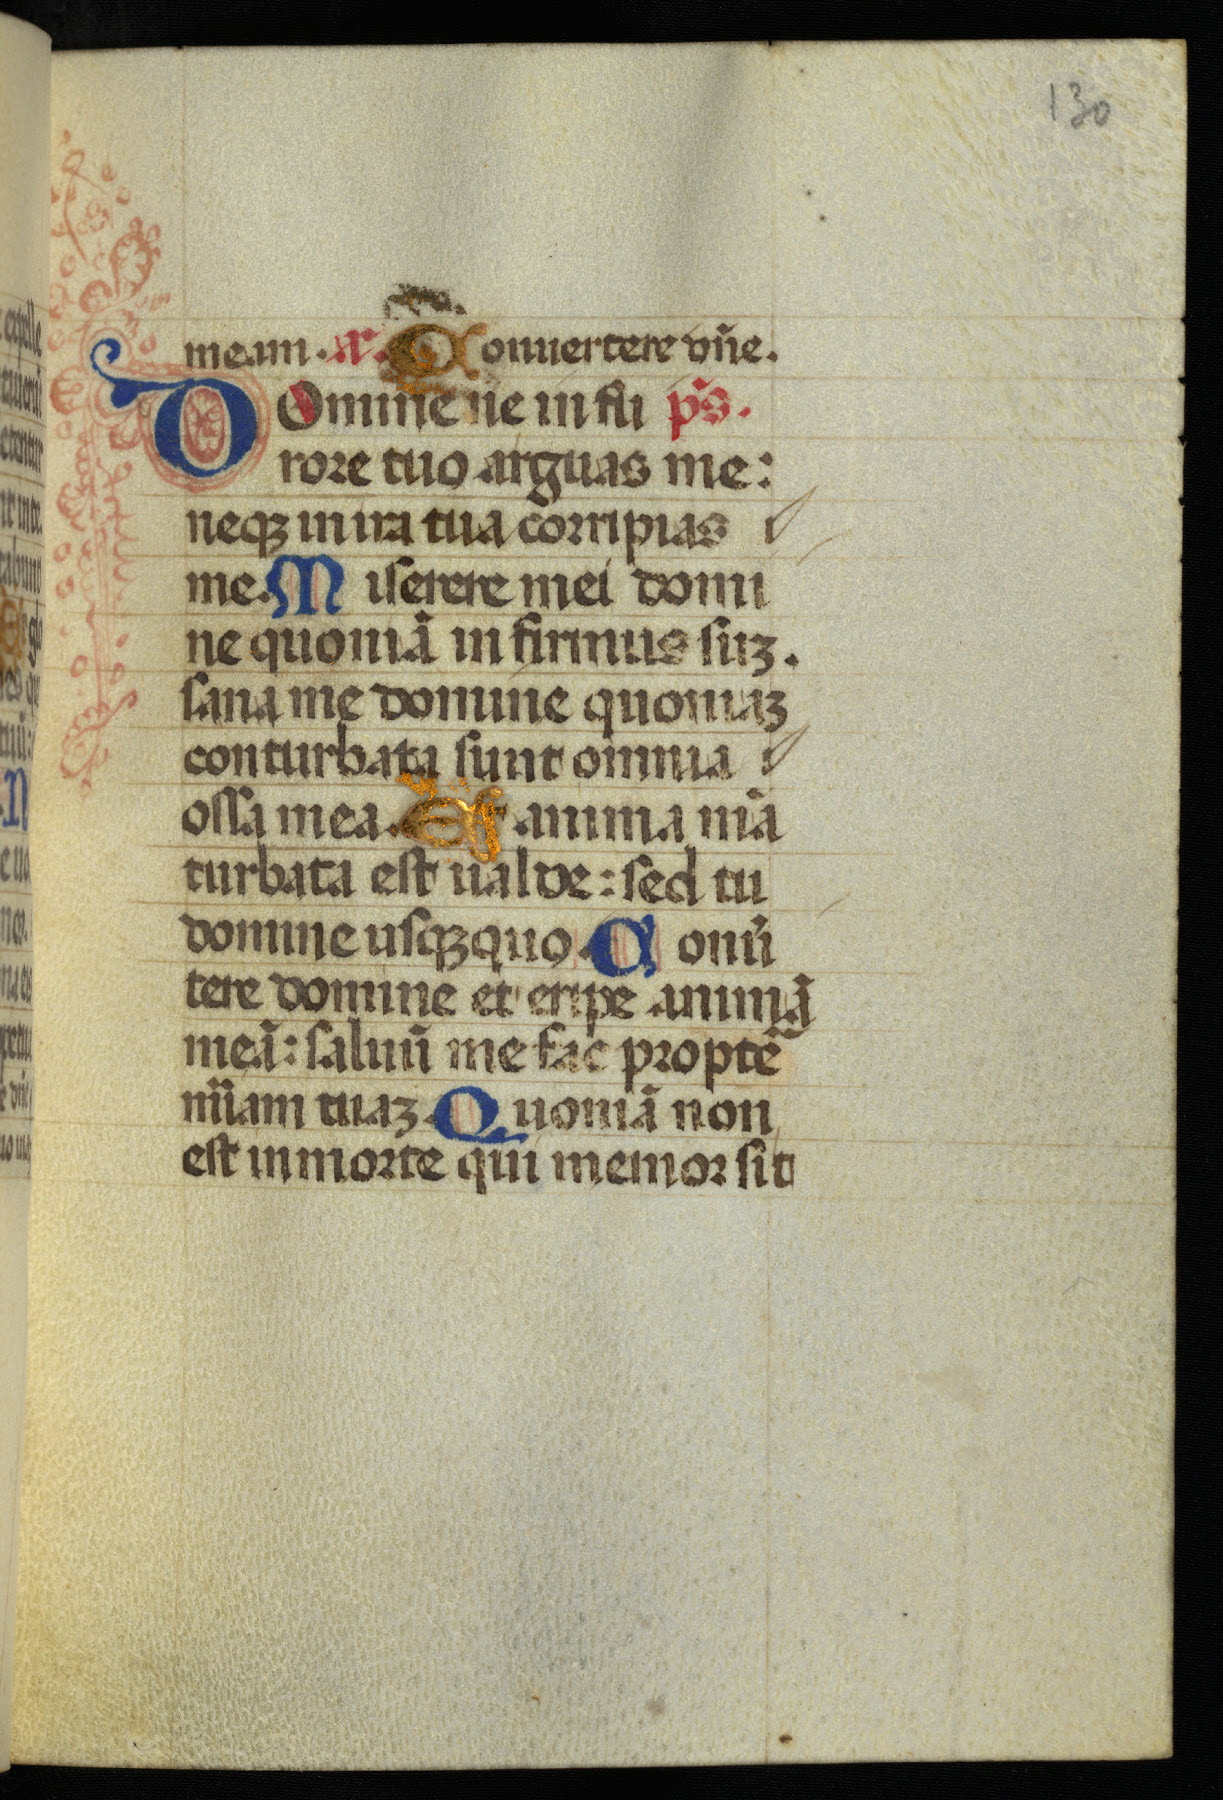 130
meam. a. Conuertere dn̄e.
DOmine ne in fu ps̄.
rore tuo arguas me:
neqꝫ in ira tua corripias
me. Miserere mei domi
ne quoniā infirmus suꝫ.
sana me domine quoniaꝫ
conturbata sunt omnia
ossa mea. Et anima mā
turbata est ualde: sed tu
domine usqꝫ quo. Conuū
tere domine et eripe animā
meā: saluū me fac propte
mīiam tuaꝫ. Quoniā non
est in morte qui memor sit